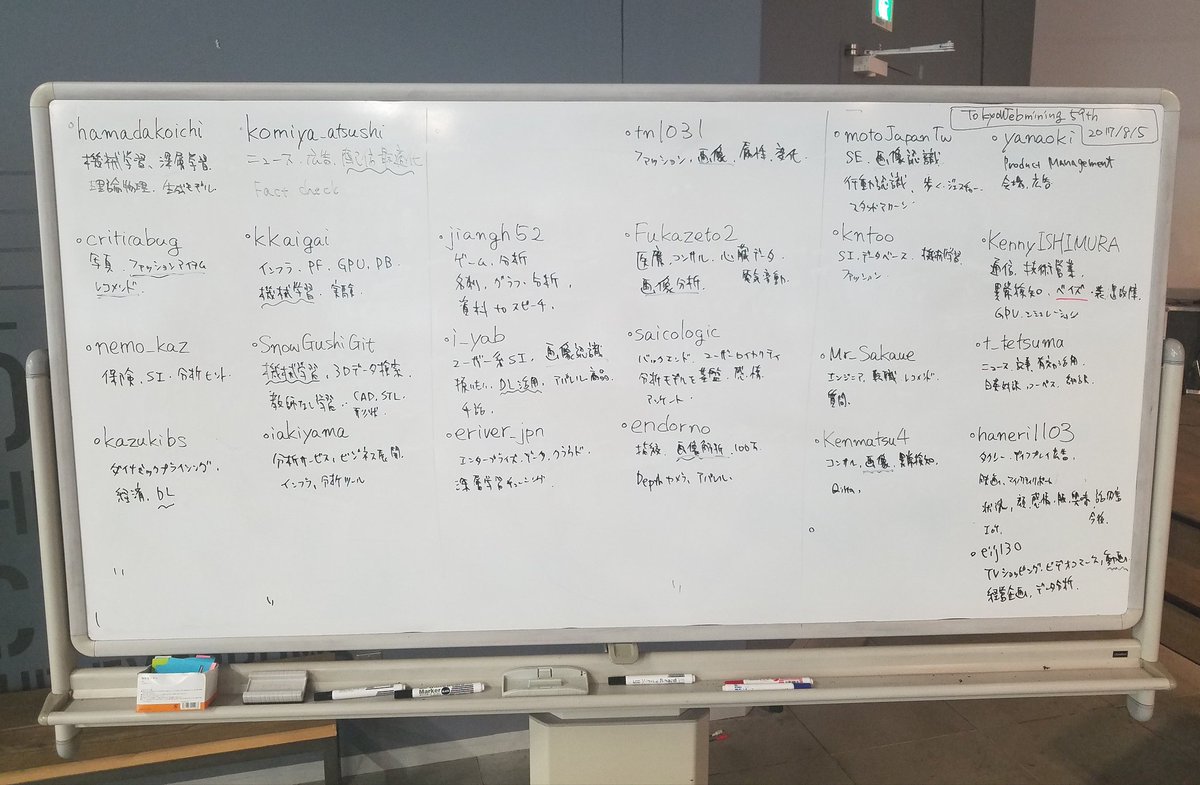 TokyoWebmining 59th
2017/8/5
hamadakoichi
機械学習、深層学習
理論物理、生成モデル
komiya_atsushi
ニュース、広告、配信最適化
Fact check
tn1031
ファッション、画像、属性、変化
motoJapanTw
SE、画像認識
行動認識、歩く、ジェスチャー
スタッドマカーン
yanaoki
Product Management
会場、広告
criticabug
写真、ファッションアイテム
レコメンド、
kkaigai
インフラ、PF、GPU、DB
機械学習、実験
jiangh52
ゲーム、分析
名刺、グラフ、分析、
資料 to スピーチ、
Fukazeto2
医療、コンサル、心臓データ
画像分析、
kntoo
SI、データベース、機械学習、
ファッション
KennyISHIMURA
通信、技術営業
異常検知、ベイズ、
GPU、シミュレーション
nemo_kaz
保険、SI、分析ヒント、
SnowGushiGit
機械学習、3Dデータ検索
教師なし学習、CAD、STL、
形状
i_yab
ユーザー系SI、画像認識
扱いたい、DL活用、アパレル商品
saicologic
バックエンド、ユーザーロイヤリティ
分析モデルを基盤
アンケート
Mr_Sakaue
エンジニア、転職、レコメンド
質問、
t_tetsuma
ニュース、記事、
自然対話、コーパス、
kazukibs
ダイナミックプライシング、
経済、DL
iakiyama
分析サービス、ビジネス展開
インフラ、分析ツール
eriver_jpn
エンタープライズ、データ、クラウド、
深層学習チューニング、
endorno
技術、画像解析、100万
Depthカメラ、アパレル、
Kenmatsu4
コンサル、画像、異常検知、
Qiita、
haneri1103
タクシー、ディスプレイ広告、
映画、マインクラフト
状況、顔、感情、服、興味、
今後、
IoT、
eiji130
TVショッピング、ビデオコマース、動画
経営企画、データ分析、
Marker